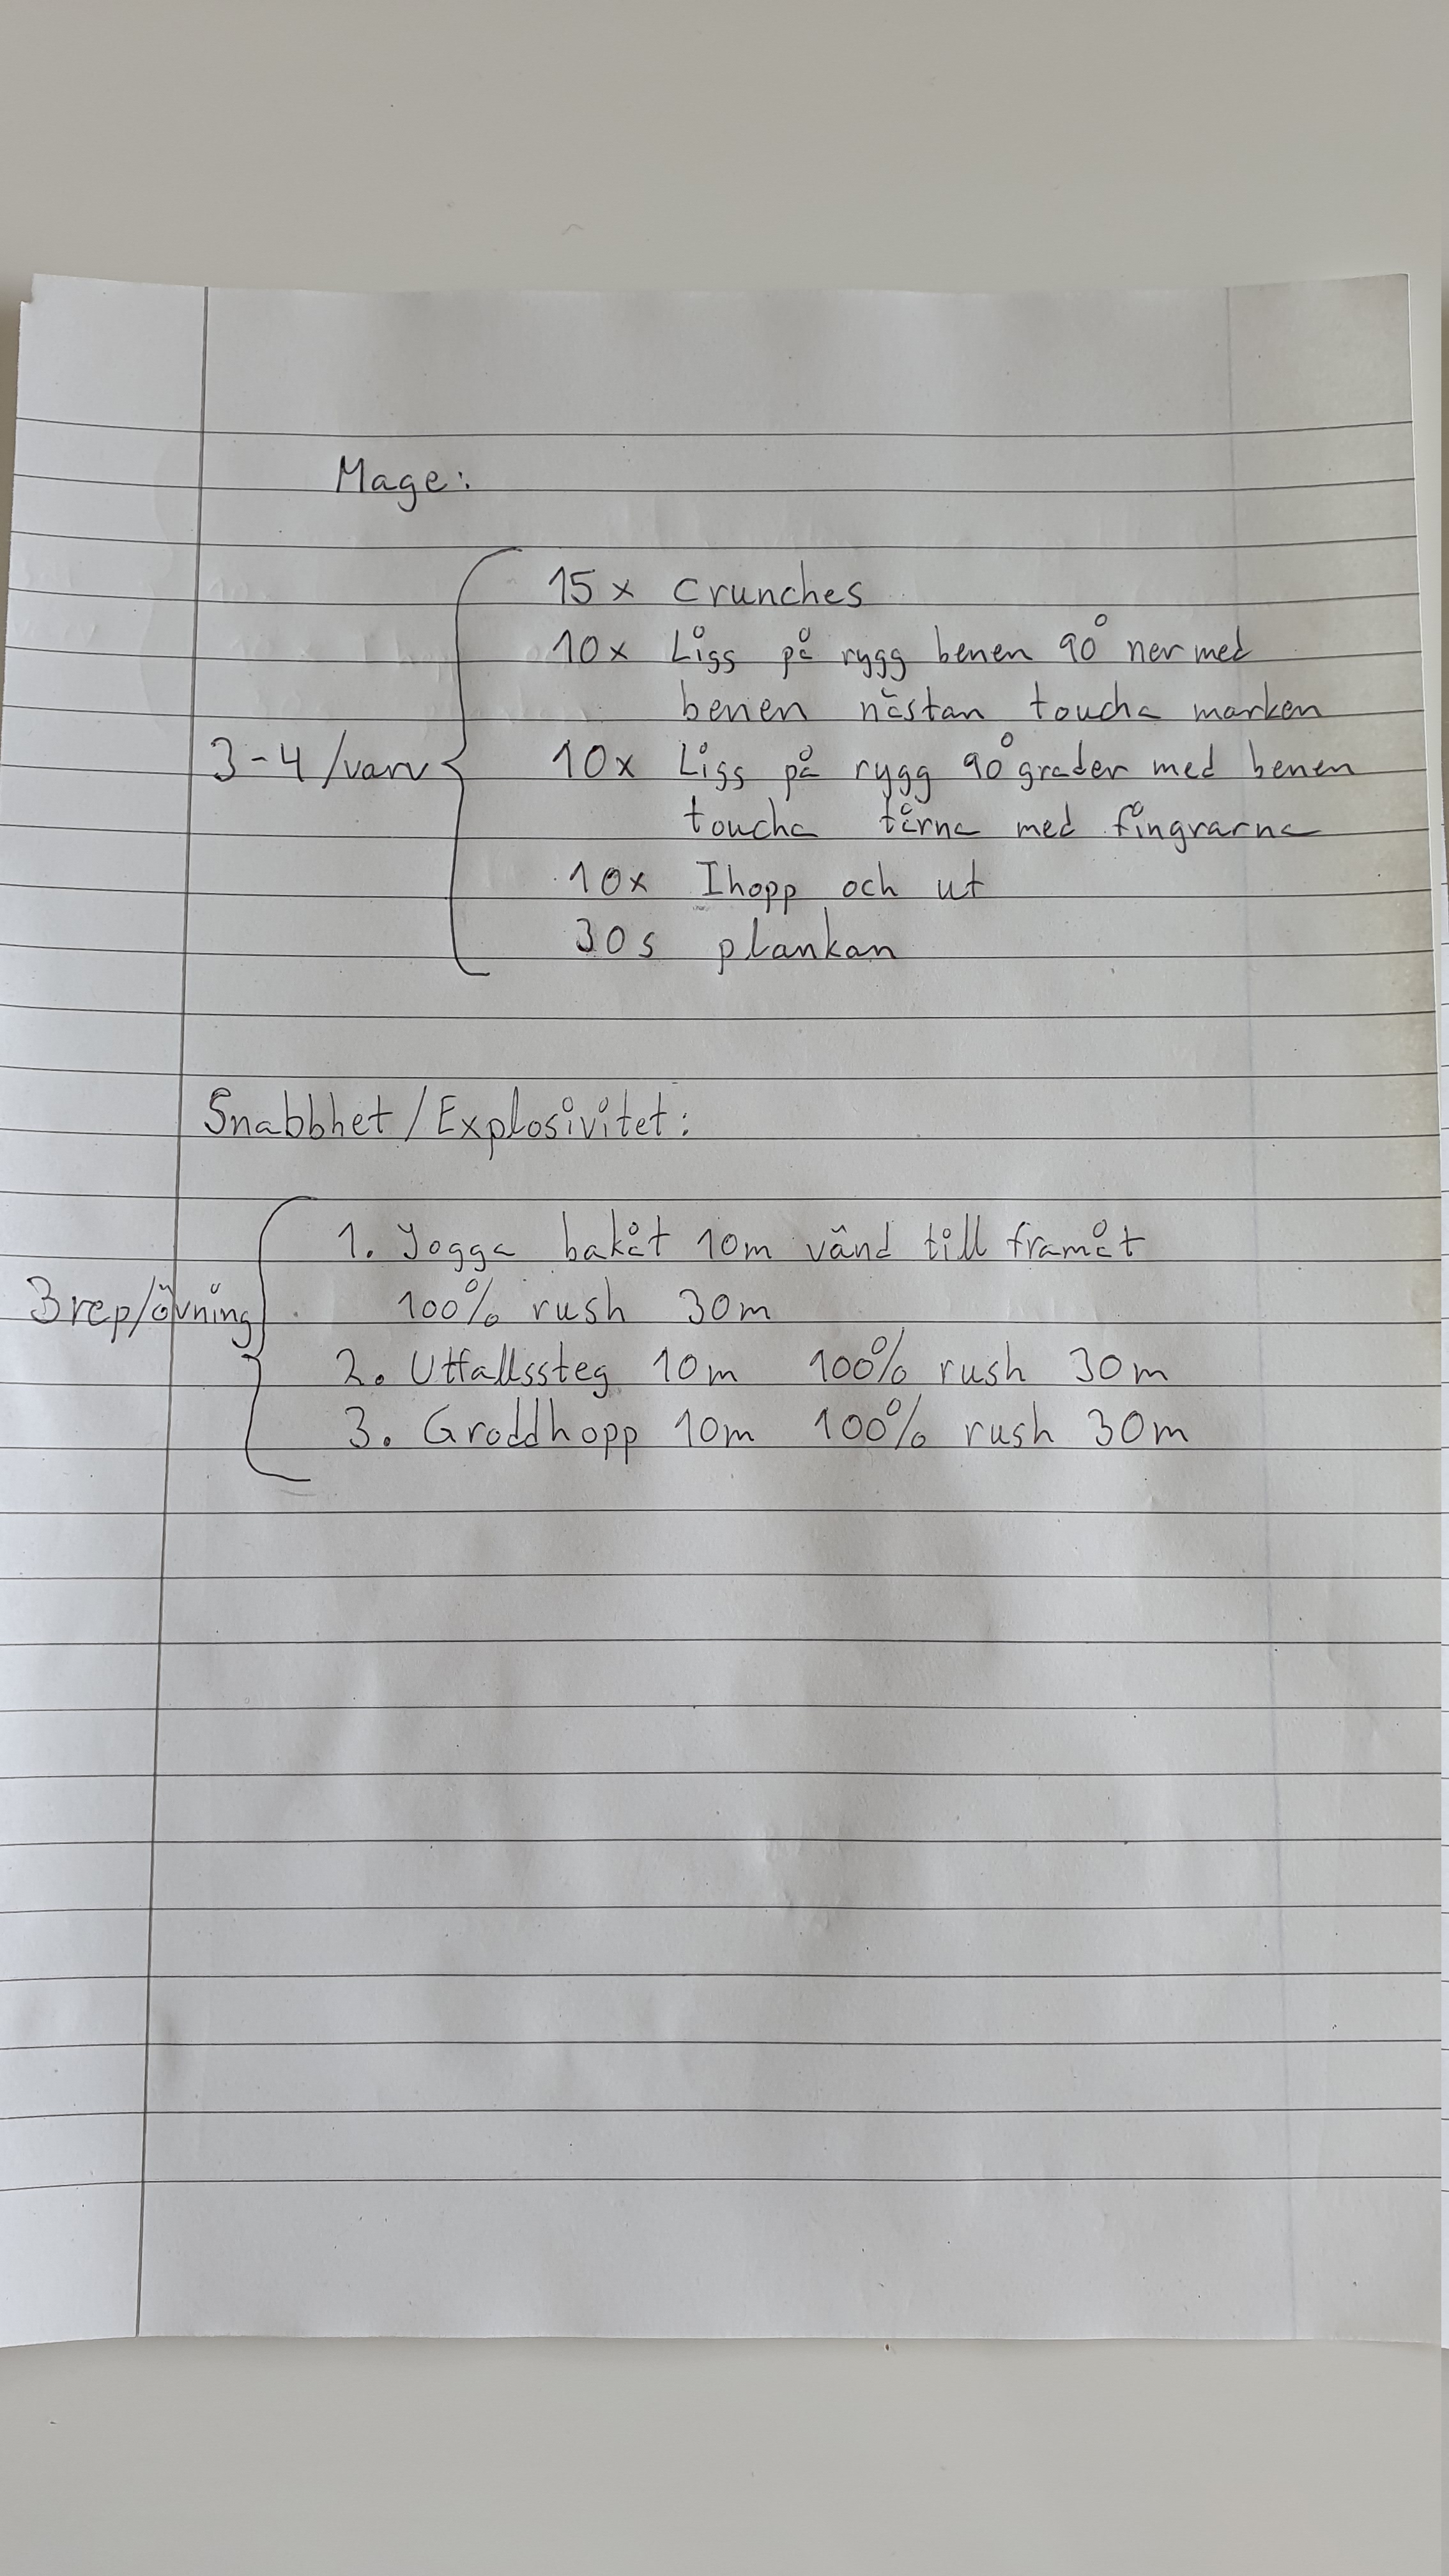 Mage:
15x crunches
10x Ligg på rygg benen 90° ner med
benen nästan toucha marken
3-4/varv
10x Ligg på rygg 90° grader med benen
toucha tårna med fingrarna
10x Ihopp och ut
30s plankan
Snabbhet/Explosivitet:
1. Jogga bakåt 10m vänd till framåt
3rep/övning
100% rush 30m
2. Utfallssteg 10m 100% rush 30m
3. Groddhopp 10m 100% rush 30m